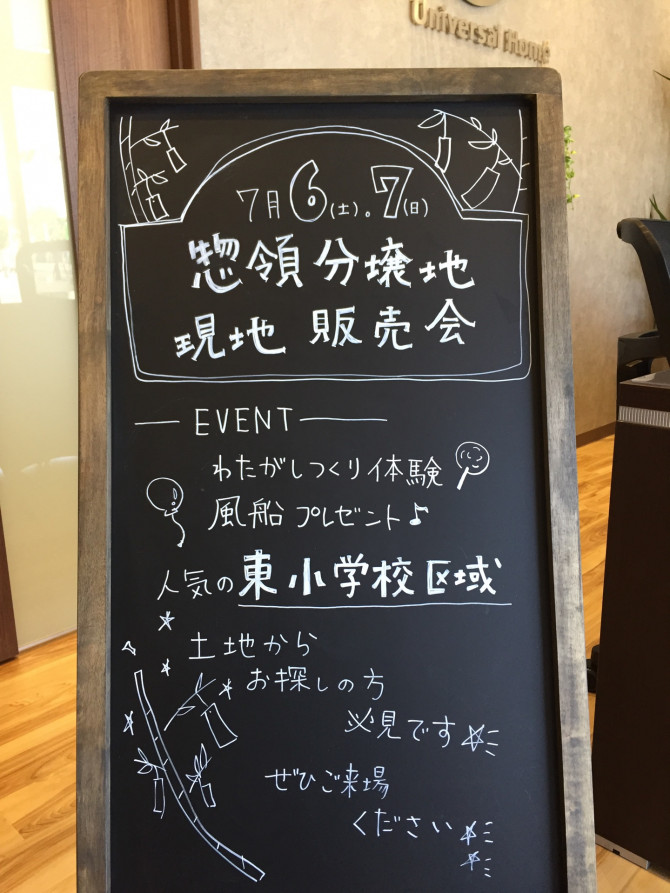 Universal Home
7月6(土)。7(日)
惣領分壌地
現地 販売会
EVENT
わたがしつくり体験
風船プレゼント♪
人気の東小学校区域
土地から
お探しの方
必見です
ぜひご来場
ください